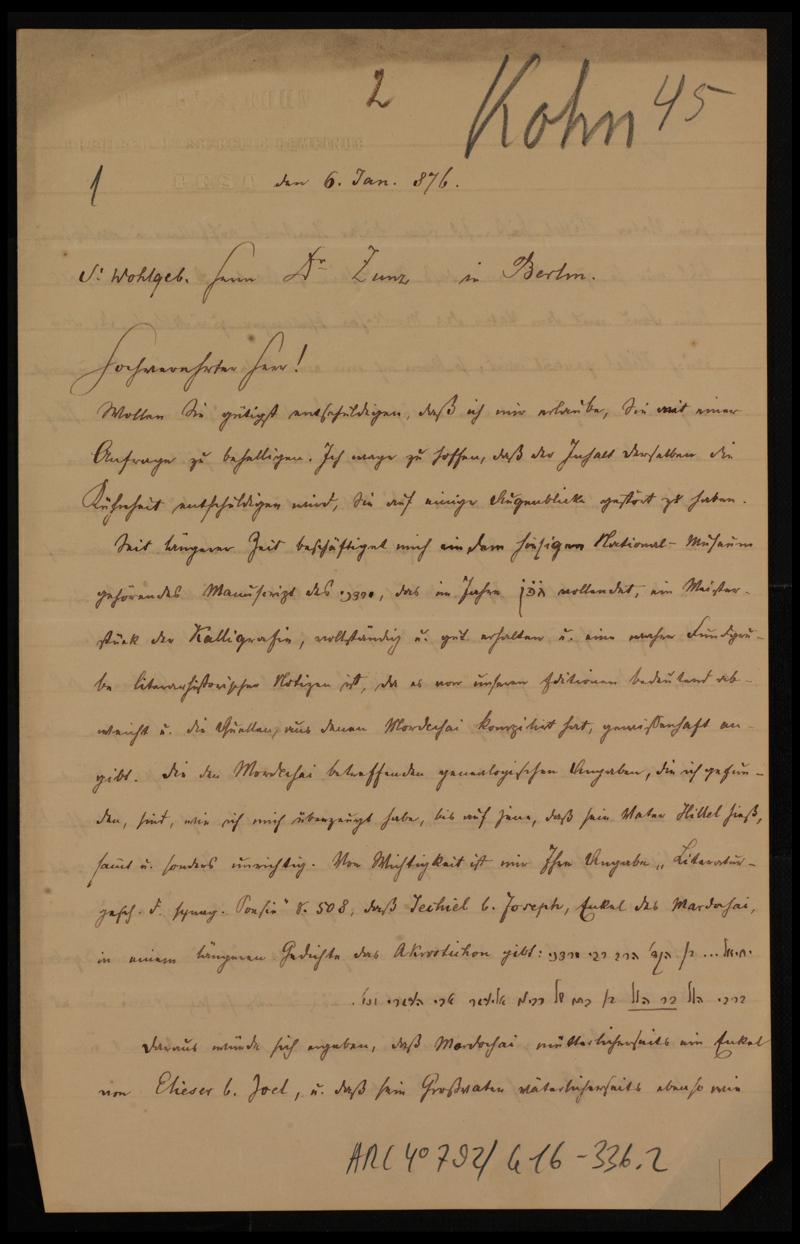 2
Kohn 45
1
den 6. Jan. 876.
Sr Wohlgeb. Herrn Dr Zunz in Berlin.
Hochverehrter Herr!
Wollen Sie gütigst entschuldigen, daß ich mir erlaube, Sie mit einer
Anfrage zu behelligen. Ich wage zu hoffen, daß der Inhalt derselben die
Kühnheit entschuldigen wird, Sie auf einige Augenblicke gestört zu haben.
Seit längerer Zeit beschäftigt mich ein dem hiesigen National-Museum
gehörendes Manuscript des מרדכי, das im Jahre vollendet, ein Meister-
stück der Kalligrafie, vollständig u. gut erhalten u. eine wahre Fundgru-
be literarhistorischer Notizen ist, da es von unseren Editionen bedeutend ab-
weicht u. die Quellen, aus denen Mordechai kompilirt hat, gewissenhaft an-
gibt. Die den Mordechai betreffenden genealogischen Angaben, die ich gefun-
den, sind, wie ich mich überzeugt habe, bis auf jene, daß sein Vater Hillel hieß,
samt u. sonders unrichtig. Von Wichtigkeit ist mir Ihre Angabe „Literatur-
gesch. d. synag. Poesie" S. 508, daß Jechiel b. Joseph, Enkel des Mardochai,
in einem längeren Gedichte das Akrostichon gibt: יחיאל ... בן הרב רבי מרדכי
ברבי הלל בר הלל בן
Daraus würde sich ergeben, daß Mordechai mütterlicherseits ein Enkel
von Elieser b. Joel, u. daß sein Großvater väterlicherseits ebenso wie
ARC 4° 792/ G 16-336.2